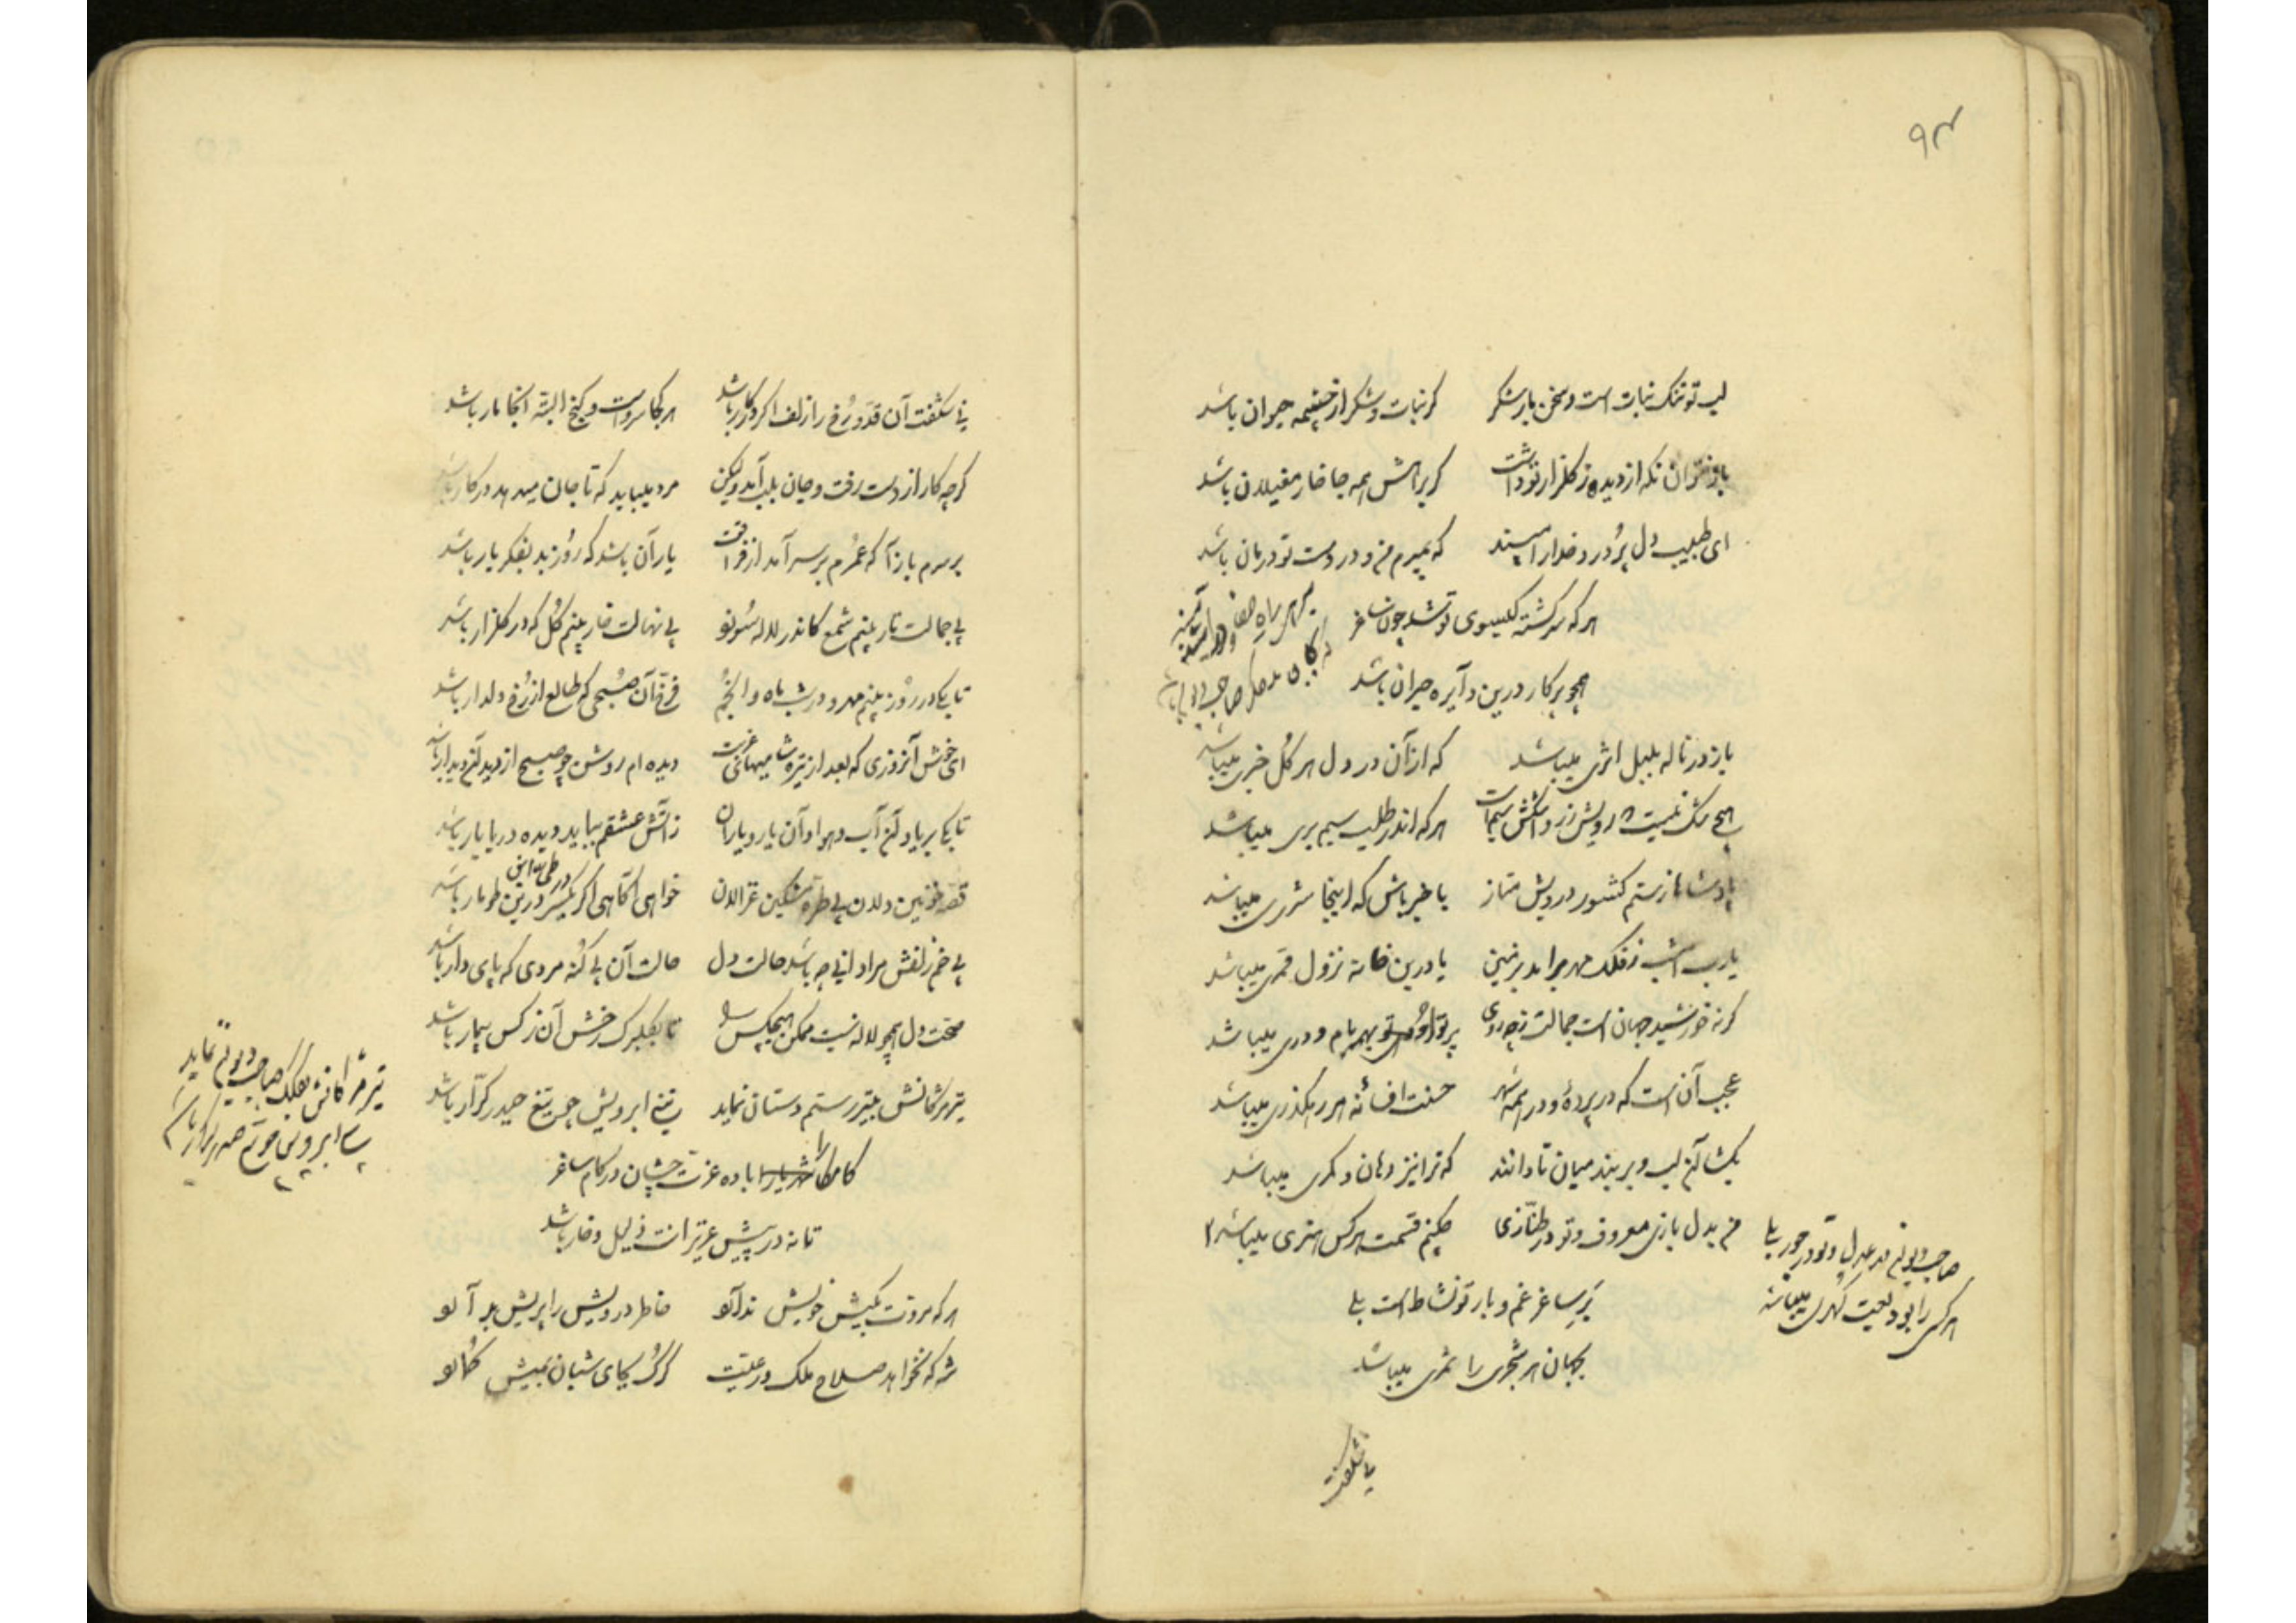 ۹۴
لب تو تنک نبات است و سخن بار شکر   کر نبات و شکر از چشمهٔ حیوان باشد
باز نتوان نکه از دیده ز کلزار تو داشت   کر براهش همه جا خار مغیلان باشد
ای طبیب دل پر درد خدا را مپسند   که بمیرم من و در دست تو درمان باشد
هر که سرکشته کیسوی تو شد چون ساغر
همچو پرکار درین دآیره حیران باشد
باز در ناله بلبل اثری میباشد   که از آن در دل هر کل خبری میباشد
هیچ شک نیست
هر که اندر طلب سیم بری میباشد
پادشاها ز ستم کشور درویش متاز   با خبر باش که اینجا شرری میباشد
یا رب امشب ز فلک مهر برآمد بزمین   یا درین خانه نزول قمری میباشد
کر نه خورشید جهان است جمالت ز چه روی   پرتو روی تو بهر بام و دری میباشد
عجب آن است که در پردهٔ و در همه شهر   حسنت افسانه هر رهکذری میباشد
بکشا آن لب و بربند میان تا دانند   که ترا نیز دهان و کمری میباشد
من بدل بازی معروف و تو در طنّازی   چکنم قسمت هر کس هنری میباشد
صاحبدیوانم در عدل و تو در جور بلی
هر کسی را بودیعت کهری میباشد
بَرِ ساغر غم و بار تو نشاط است بلی
بجهان هر شجری را ثمری میباشد
بی شکفت
بی شکفت آن قدّ و رُخ را زلف اکر در کار باشد   هر کجا سرو است و کنج البتّه آنجا مار باشد
کر چه کار از دست رفت و جان بلب آمد ولیکن   مرد میباید که تا جان میدهد در کار باشد
بر سرم باز آ که عُمرم بر سر آمد از فراقت   یار آن باشد که روُز بد بفکر یار باشد
بی جمالت نار بینم شمع کاندر لاله سُوزد   بی نهالت خار بینم کُل که در کلزار باشد
تا بکی در روُز بینم مهر و در شب ماه و انجُم   فرّخ آن صُبحی که طالع از رُخ دلدار باشد
ای خوش آنروزی که بعد از تیره شامیهای غربت   دیده ام روشن چو صبح از دیدن آن دیدار باشد
تا بکی بر یاد آن آب و هوا و آن یار و یاران   ز آتش عشقم بباید دیده دریا بار باشد
قصّه خونین دلان بی طرّه مشکین غزالان   خواهی آکاهی اکر یکسر درین طومار باشد
در طیّ این
بی خم زلفش مرا دانی چه باشد حالت دل   حالت آن بی کنه مردی که پای دار باشد
سخت دل همچو لاله نیست ممکن هیچکس را   تا بکلبرک رخش آن نرکس بیمار باشد
تیر مژکانش بتیر رستم دستان نماید   تیغ ابرویش چو تیغ حیدر کرّار باشد
تیر مژکانش بکلک صاحبدیوانم نماید
کامکارا باده عزّت چشان در کام ساغر
تا نه در پیش عزیزانت ذلیل و خوار باشد
هر که مروّت بکیش خویش ندارد   خاطر درویش را پریش برآرد
شه که نخواهد صلاح ملک و رعیّت   کرک بجای شبان بمیش کمارد